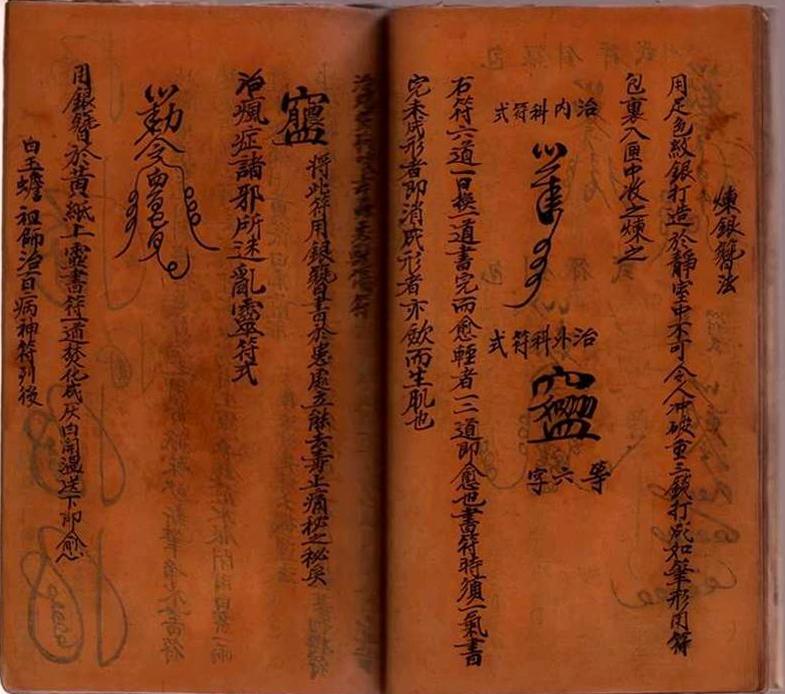 煉銀簪法
用足色紋銀打造於靜室中不可令人冲破重三錢打成如筆形用符
包裹入匣中收之煉之
治内科符式
治外科符式
等六字
右符六道一日換一道書完而愈輕者一二道即愈也書符時須一氣書
完未成形者即消成形者亦飲而生肌也
將此符用銀簪書於患處立能去毒止痛秘之秘矣
治瘋症諸邪所迷亂靈符式
用銀簪於黄紙上虛書符一道焚化成灰白開溫送下即愈
白玉蟾祖師治百病神符列後